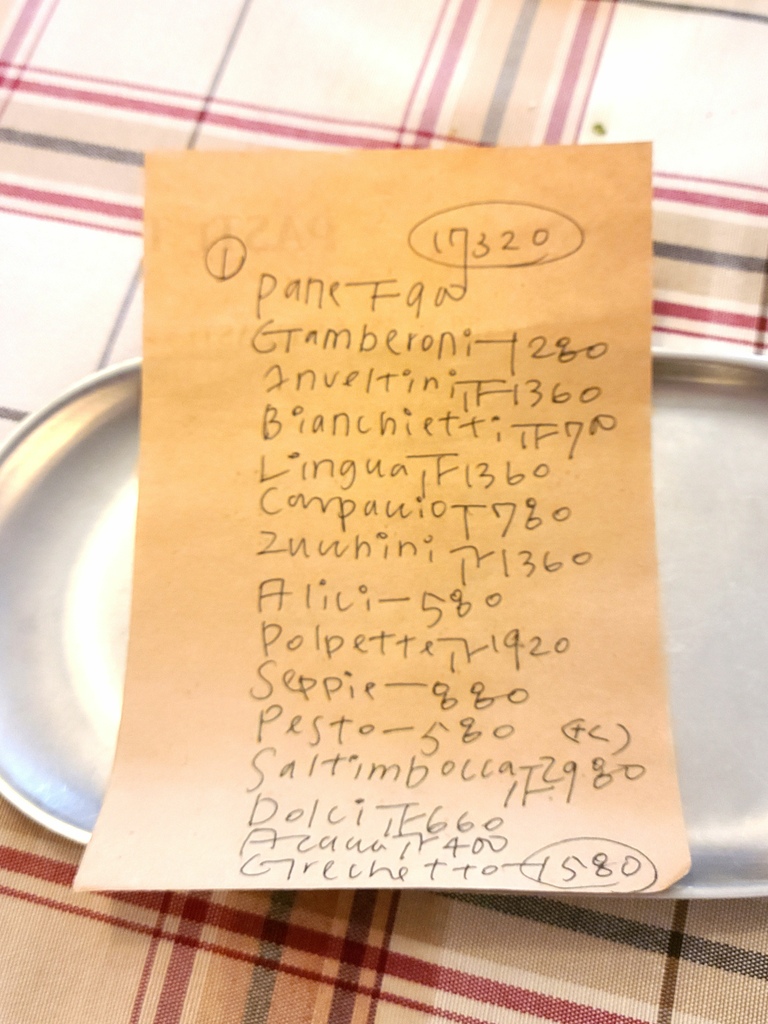 17320
①
Pane 900
Gamberoni — 1280
Involtini 1360
Bianchietti 700
Lingua 1360
Carpaccio T 780
Zucchini 1360
Alici — 580
Polpette 1920
Seppie — 880
Pesto — 580 (+C)
Saltimbocca 2980
Dolci 660
Acqua 400
Grechetto — 1580